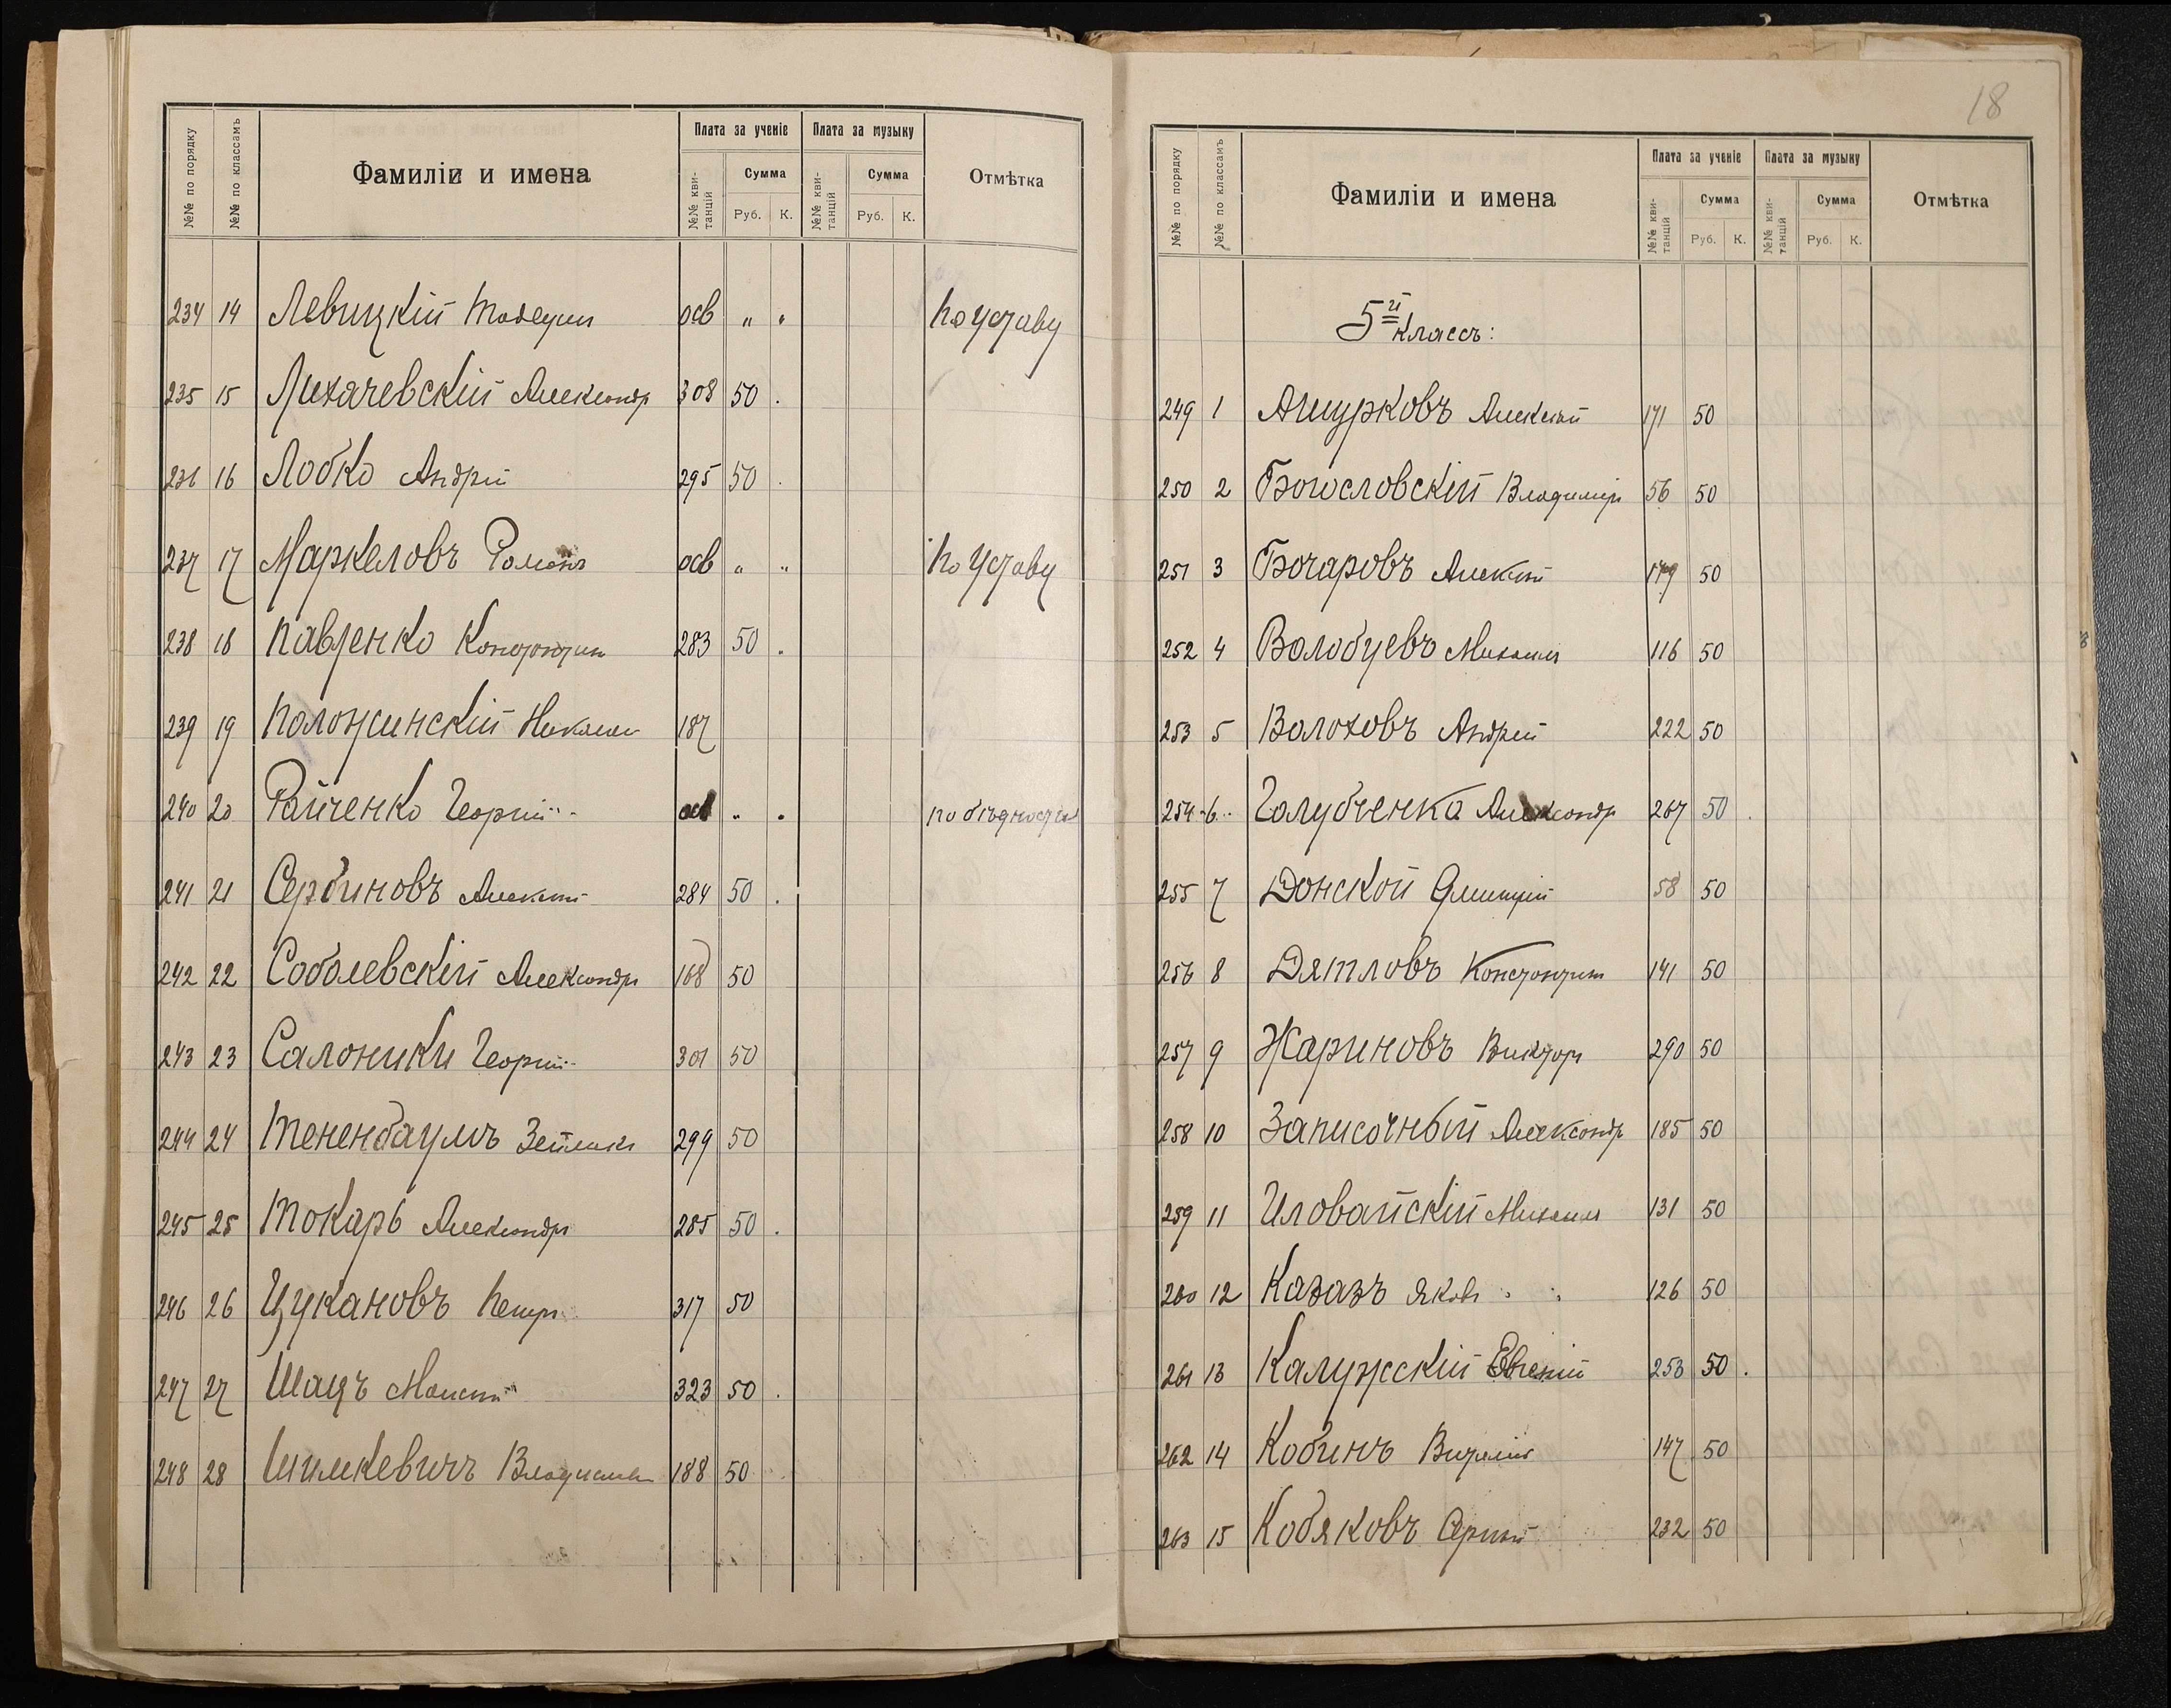 №№ по порядку
№№ по классамъ
Фамиліи и имена
Плата за ученіе
Плата за музыку
№№ кви-
танцій
Сумма
Руб. К.
№№ кви-
танцій
Сумма
Руб. К.
Отмѣтка
234 14 Левицкій Тадеуш осв „ „ по уставу
235 15 Лихачевскій Александр 308 50 .
236 16 Лобко Андрей 295 50 .
237 17 Маркеловъ Романъ осв „ „ по уставу
238 18 Павленко Константин 283 50 .
239 19 Положинскій Николай 187
240 20 Райченко Георгій осв „ . по бѣдности
241 21 Сербиновъ Алексей 284 50 .
242 22 Соболевскій Александръ 168 50
243 23 Салоники Георгій 301 50
244 24 Тененбаумъ 299 50
245 25 Токарь Александръ 285 50 .
246 26 Цукановъ Петръ 317 50
247 27 Шацъ Моисей 323 50 .
248 28 Шимкевичъ Владислав 188 50
18
№№ по порядку
№№ по классамъ
Фамиліи и имена
Плата за ученіе
Плата за музыку
№№ кви-
танцій
Сумма
Руб. К.
№№ кви-
танцій
Сумма
Руб. К.
Отмѣтка
5й классъ:
249 1 Ашурковъ Алексѣй 171 50
250 2 Богословскій Владимір 56 50
251 3 Бочаровъ Алексей 179 50
252 4 Волобуевъ Михаил 116 50
253 5 Волоховъ Андрей 222 50
254 6 Голубченко Александр 267 50 .
255 7 Донской Дмитрій 58 50
256 8 Дятловъ Константин 141 50
257 9 Жариновъ Викторъ 290 50
258 10 Записочный Александр 185 50
259 11 Иловайскій Михаил 131 50
260 12 Казазъ Яковъ 126 50
261 13 Калужскій Евгеній 253 50 .
262 14 Кобинъ Виталій 147 50
263 15 Кобяковъ Сергей 232 50